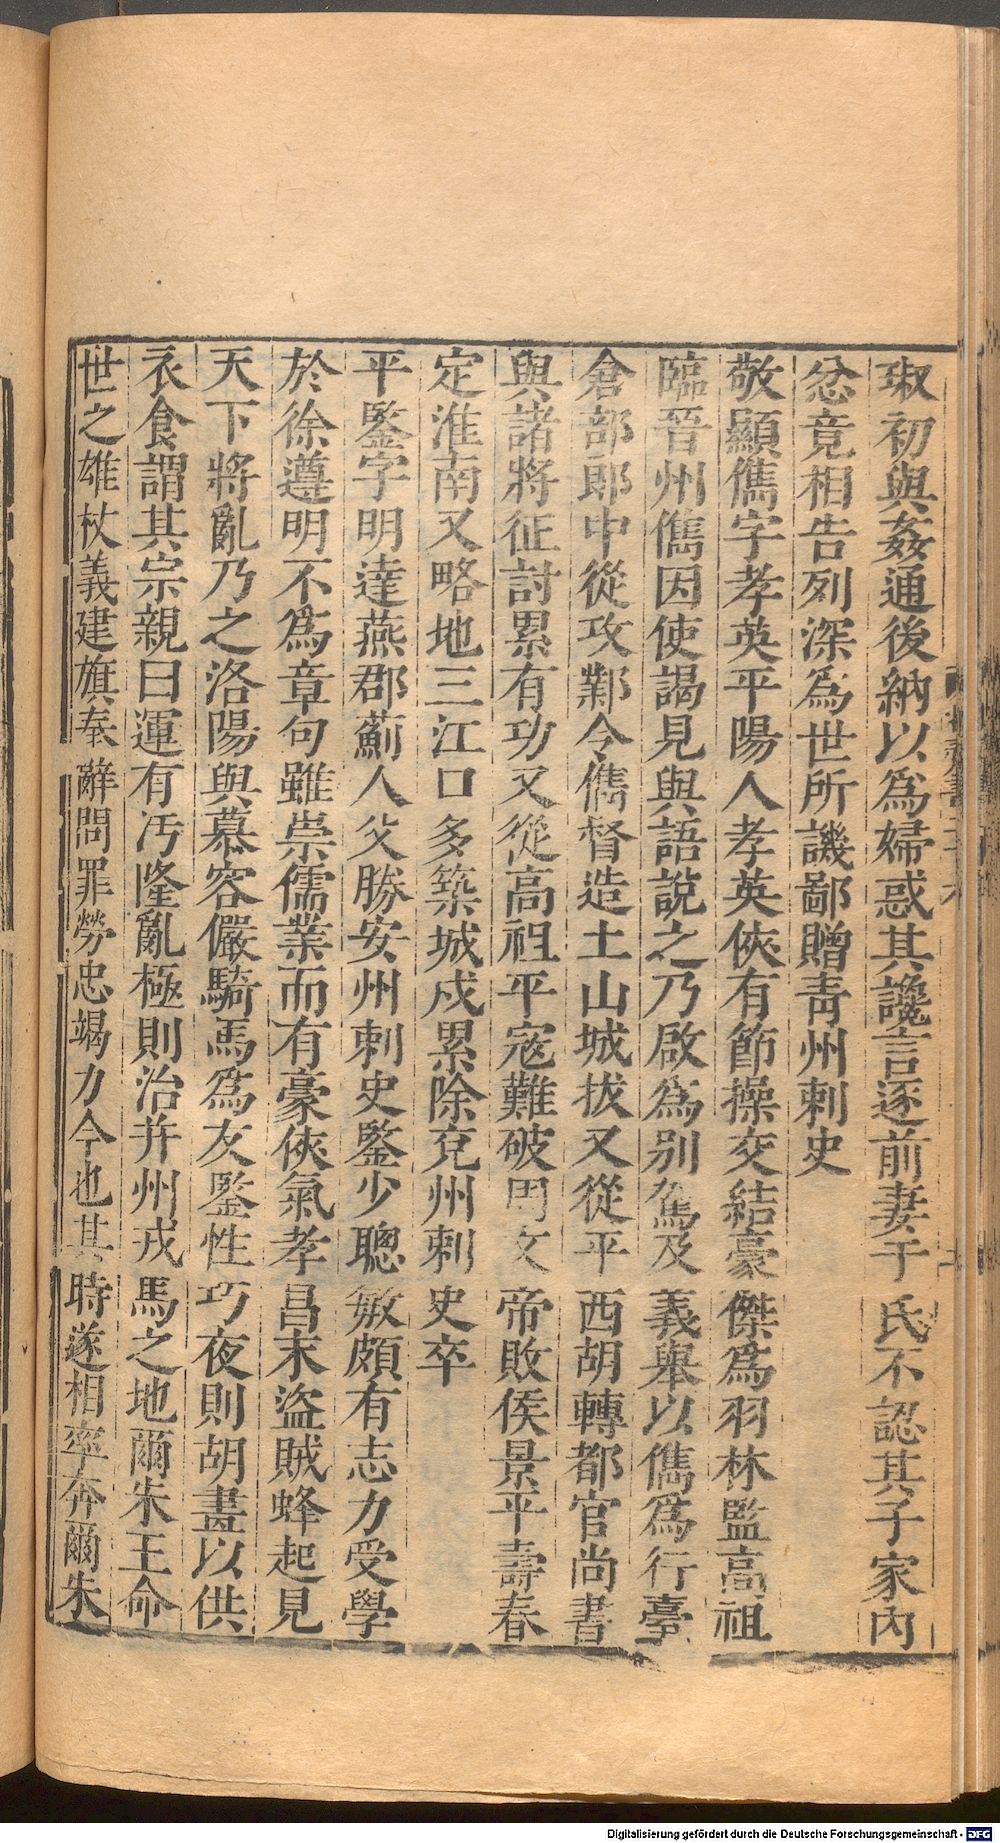 琡初與姦通後納以爲婦惑其讒言逐前妻于氏不認其子家內
忿竟相告列深爲世所譏鄙贈靑州刺史
敬顯儁字孝英平陽人孝英俠有節操交結豪傑爲羽林監高祖
臨晉州儁因使謁見與語說之乃啟爲别駕及義舉以儁爲行臺
倉部郎中從攻鄴令儁督造土山城拔又從平西胡轉都官尚書
與諸將征討累有功又從高祖平寇難破周文帝敗侯景平壽春
定淮南又略地三江口多築城戍累除兗州刺史卒
平鑒字明達燕郡薊人父勝安州刺史鑒少聰敏頗有志力受學
於徐遵明不爲章句雖崇儒業而有豪俠氣孝昌末盜賊蜂起見
天下將亂乃之洛陽與慕容儼騎馬爲友鑒性巧夜則胡畫以供
衣食謂其宗親曰運有汚隆亂極則治幷州戎馬之地爾朱王命
世之雄杖義建旗奉辭問罪勞忠竭力今也其時遂相率奔爾朱
Digitalisierung gefördert durch die Deutsche Forschungsgemeinschaft - DFG